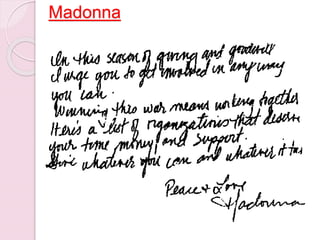 Madonna
In this season of giving and goodwill
I urge you to get involved in any way
you can.
Winning this war means working together
Here's a list of organizations that deserve
your time, money, and support.
Give whatever you can and whatever it takes
Peace + Love
Madonna